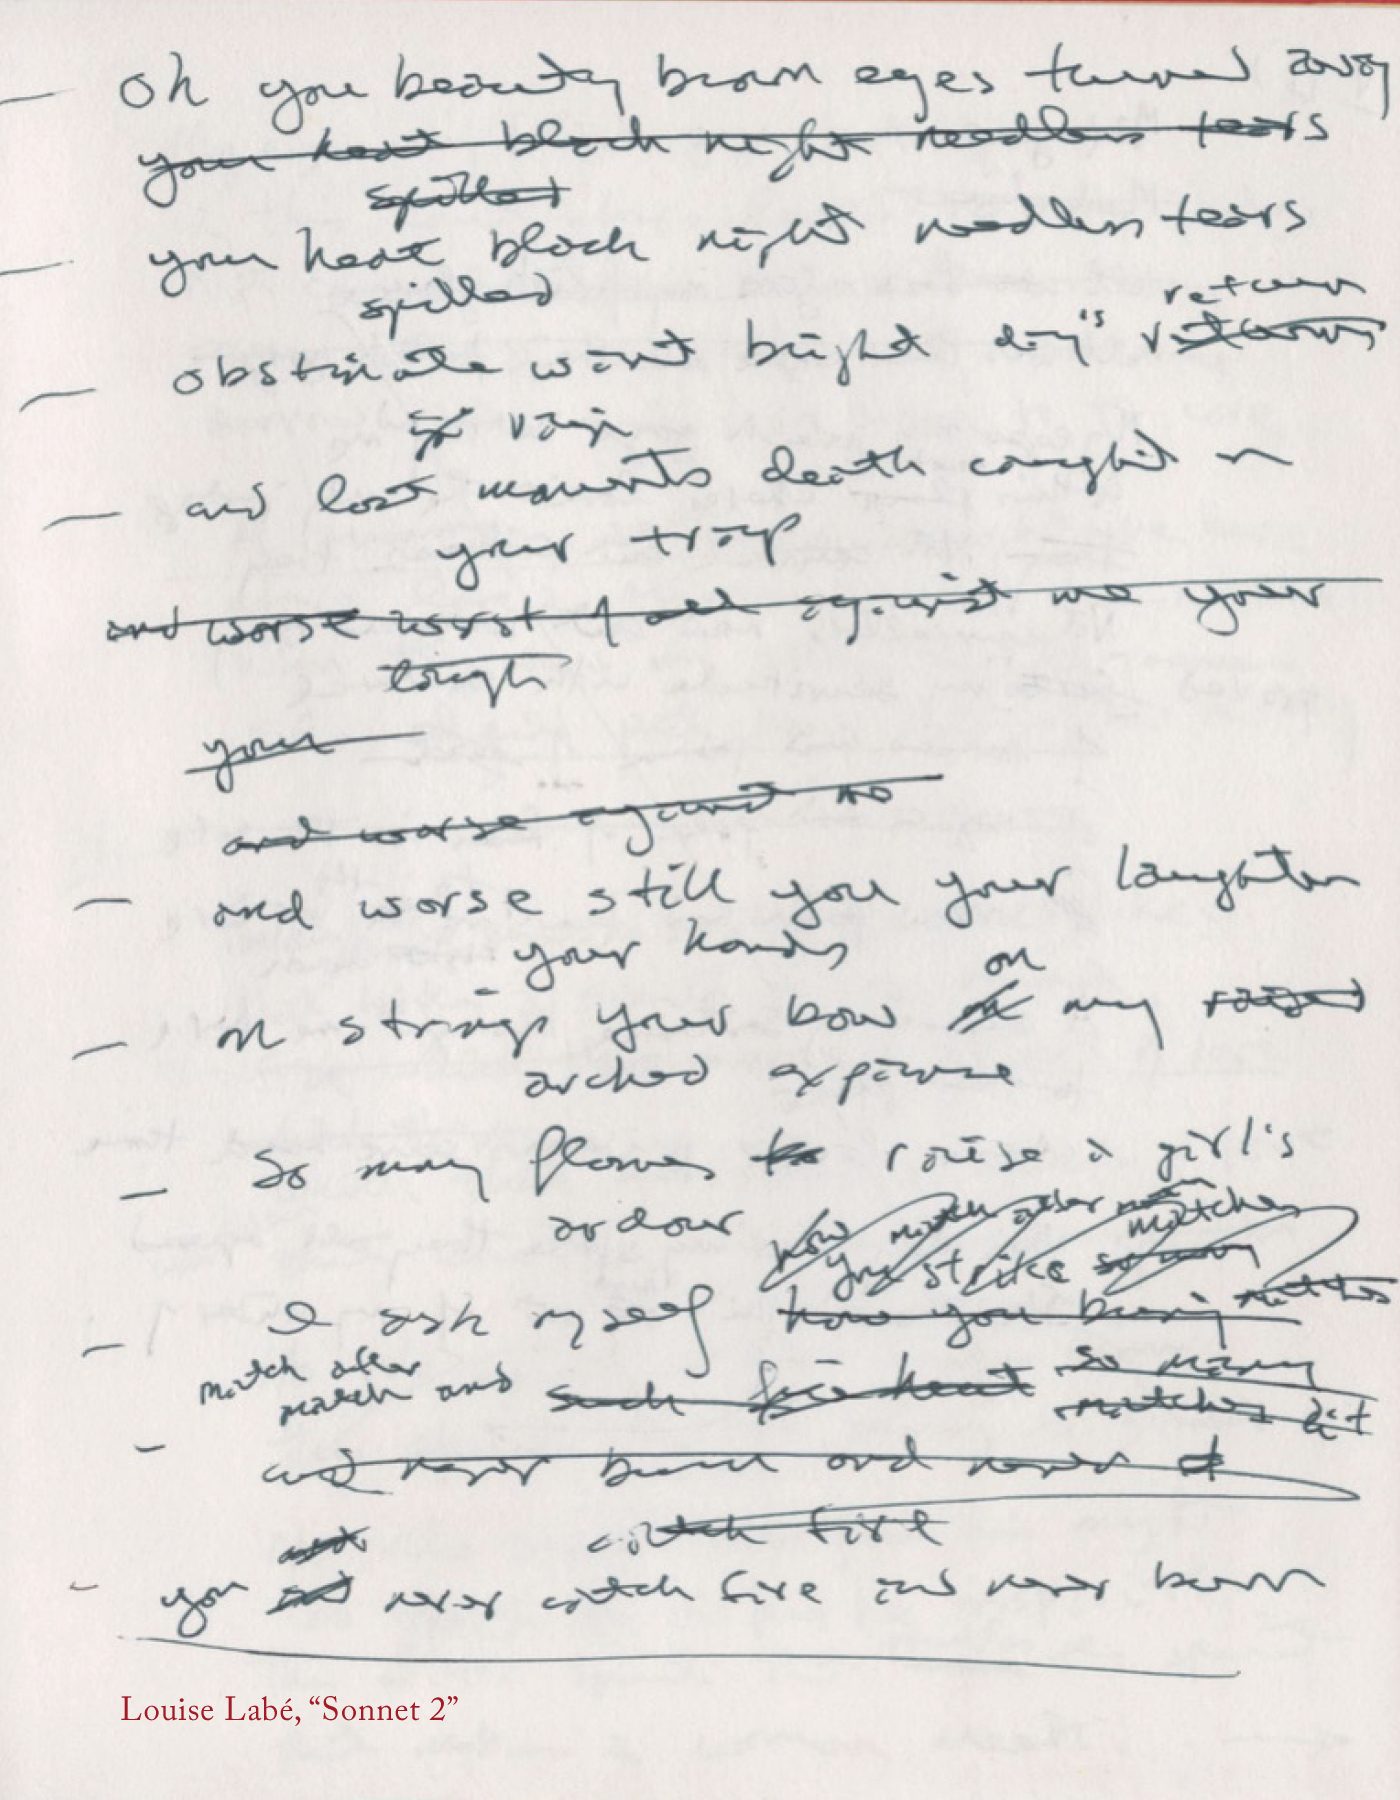 — Oh you beauty brown eyes turned away
your heat black night needless tears
spilled
— your heat black night needless tears
spilled
return
— obstinate want bright day's returns
in vain
— and lost moments death caught in
your trap
and worse worst of all against me your
laugh
your
and worse against me
— and worse still you your laughter
your hands
on
— on strings your bow my raised
arched expanse
— So many flames to raise a girl's
ardour how match after match
matches
you strike so many
— I ask myself how you bring matches
match after so many
match and such fire heat matches lit
- and never burn and never
catch fire
and
- you and never catch fire and never burn
Louise Labé, “Sonnet 2”